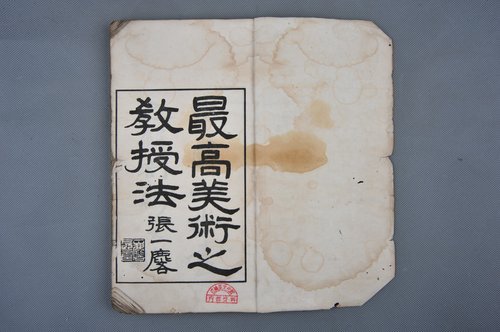 最高美術之
教授法
張一麐